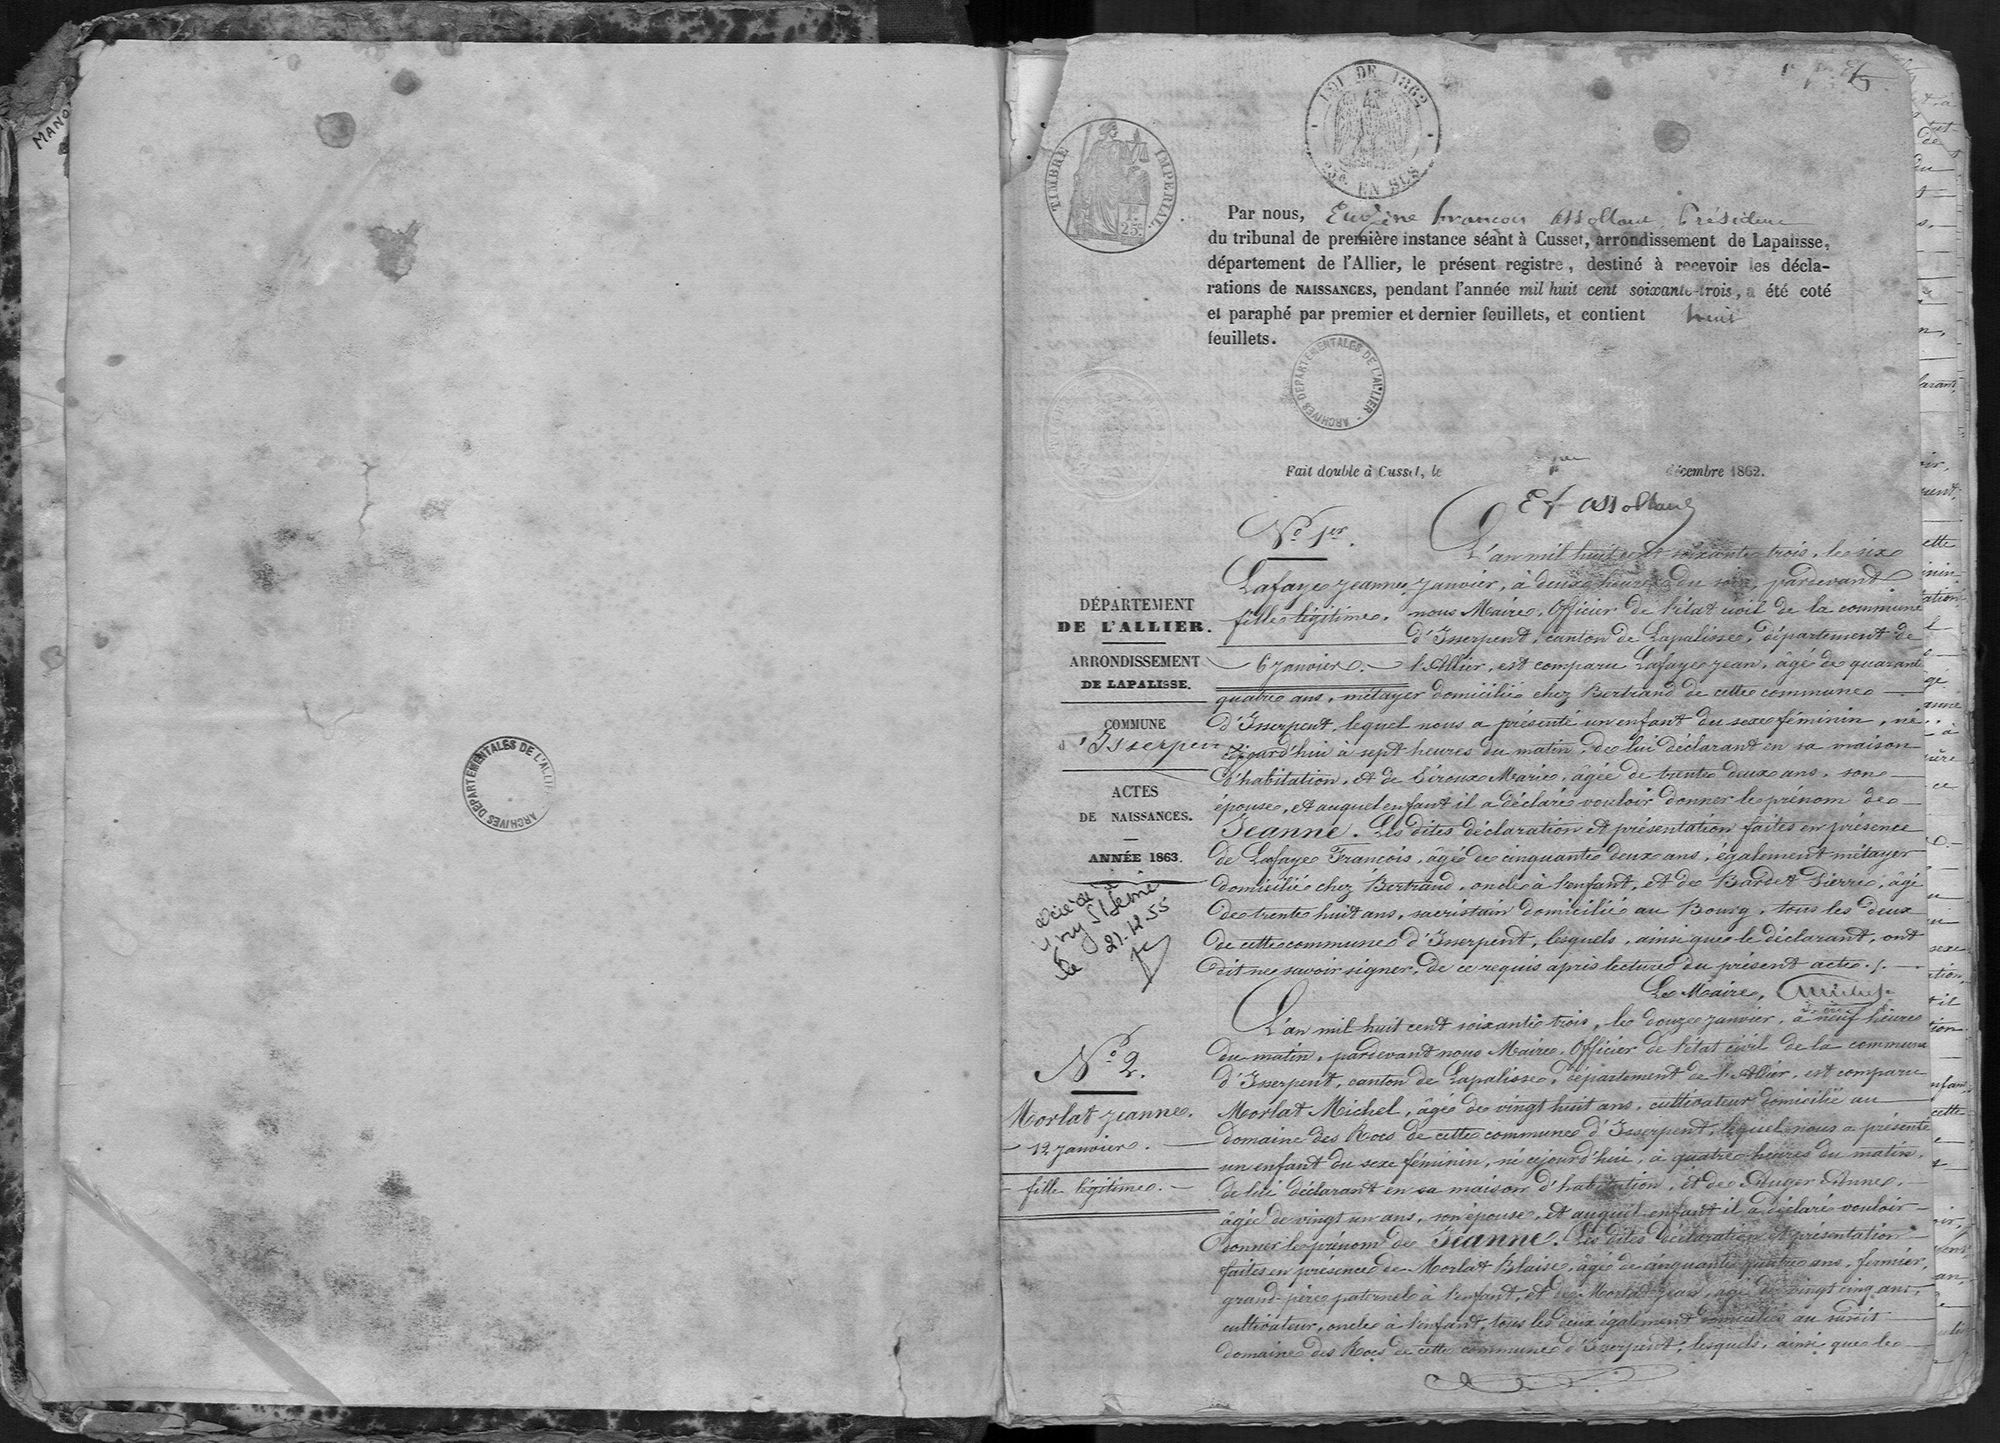 MANO
ARCHIVES DEPARTEMENTALES DE L'ALLIER
TIMBRE IMPERIAL
1F. 25c
LOI DE 1862
EN SUS
Par nous, Eugène françois assollant, Président
du tribunal de première instance séant à Cusset, arrondissement de Lapalisse,
département de l'Allier, le présent registre, destiné à recevoir les décla-
rations de NAISSANCES, pendant l'année mil huit cent soixante-trois, a été coté
et paraphé par premier et dernier feuillets, et contient huit
feuillets.
ARCHIVES DEPARTEMENTALES DE L'ALLIER
Fait double à Cusset, le 1er décembre 1862.
Ef assollant
DÉPARTEMENT
DE L'ALLIER.
ARRONDISSEMENT
DE LAPALISSE.
COMMUNE
d'Isserpent
ACTES
DE NAISSANCES.
ANNÉE 1863.
décédée à
le 21.12.55
No. 1er.
Lafaye Jeanne,
fille légitime.
6 Janvier.
L'an mil huit cent soixante trois, le six
Janvier, à deux heures du soir, pardevant
nous Maire, Officier de l'état civil de la commune
d'Isserpent, canton de Lapalisse, département de
l'Allier, est comparu Lafaye Jean, âgé de quarante
quatre ans, métayer domicilié chez Bertrand de cette commune
d'Isserpent, lequel nous a présenté un enfant du sexe féminin, né
cejourd'hui à sept heures du matin, de lui déclarant en sa maison
d'habitation, et de Séroux Marie, âgée de trente deux ans, son
épouse, et auquel enfant il a déclaré vouloir donner le prénom de
Jeanne. Les dites déclaration et présentation faites en présence
de Lafaye François, âgé de cinquante deux ans, également métayer
domicilié chez Bertrand, oncle à l'enfant, et de Bardet Pierre, âgé
de trente huit ans, sacristain domicilié au Bourg, tous les deux
de cette commune d'Isserpent, lesquels, ainsi que le déclarant, ont
dit ne savoir signer, de ce requis après lecture du présent acte./.
Le Maire,
No. 2.
Morlat Jeanne.
12 Janvier.
fille légitime.
L'an mil huit cent soixante trois, le douze janvier, à neuf heures
du matin, pardevant nous Maire, Officier de l'état civil de la commune
d'Isserpent, canton de Lapalisse, département de l'Allier, est comparu
Morlat Michel, âgé de vingt huit ans, cultivateur domicilié au
domaine des Rocs de cette commune d'Isserpent, lequel nous a présenté
un enfant du sexe féminin, né cejourd'hui, à quatre heures du matin,
de lui déclarant en sa maison d'habitation, et de Auger Anne,
âgée de vingt un ans, son épouse, et auquel enfant il a déclaré vouloir
donner le prénom de Jeanne. Les dites déclaration et présentation
faites en présence de Morlat Blaise, âgé de cinquante quatre ans, fermier,
grand-père paternel à l'enfant, et de Morlat Jean, âgé de vingt cinq ans,
cultivateur, oncle à l'enfant, tous les deux également domiciliés au susdit
domaine des Rocs de cette commune d'Isserpent, lesquels, ainsi que le